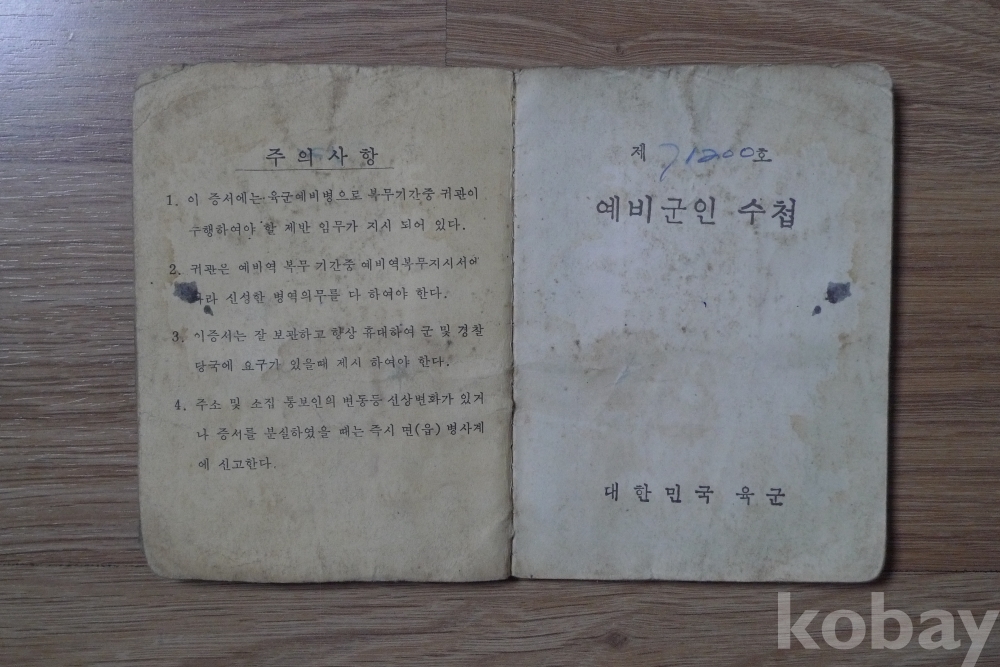 주의사항
1. 이 증서에는 육군예비병으로 복무기간중 귀관이
수행하여야 할 제반 임무가 지시 되어 있다.
2. 귀관은 예비역 복무 기간중 예비역복무지시서에
따라 신성한 병역의무를 다 하여야 한다.
3. 이증서는 잘 보관하고 항상 휴대하여 군 및 경찰
당국에 요구가 있을때 제시 하여야 한다.
4. 주소 및 소집 통보인의 변동등 신상변화가 있거
나 증서를 분실하였을 때는 즉시 면(읍) 병사계
에 신고한다.
제 71200호
예비군인 수첩
대한민국 육군
kobay